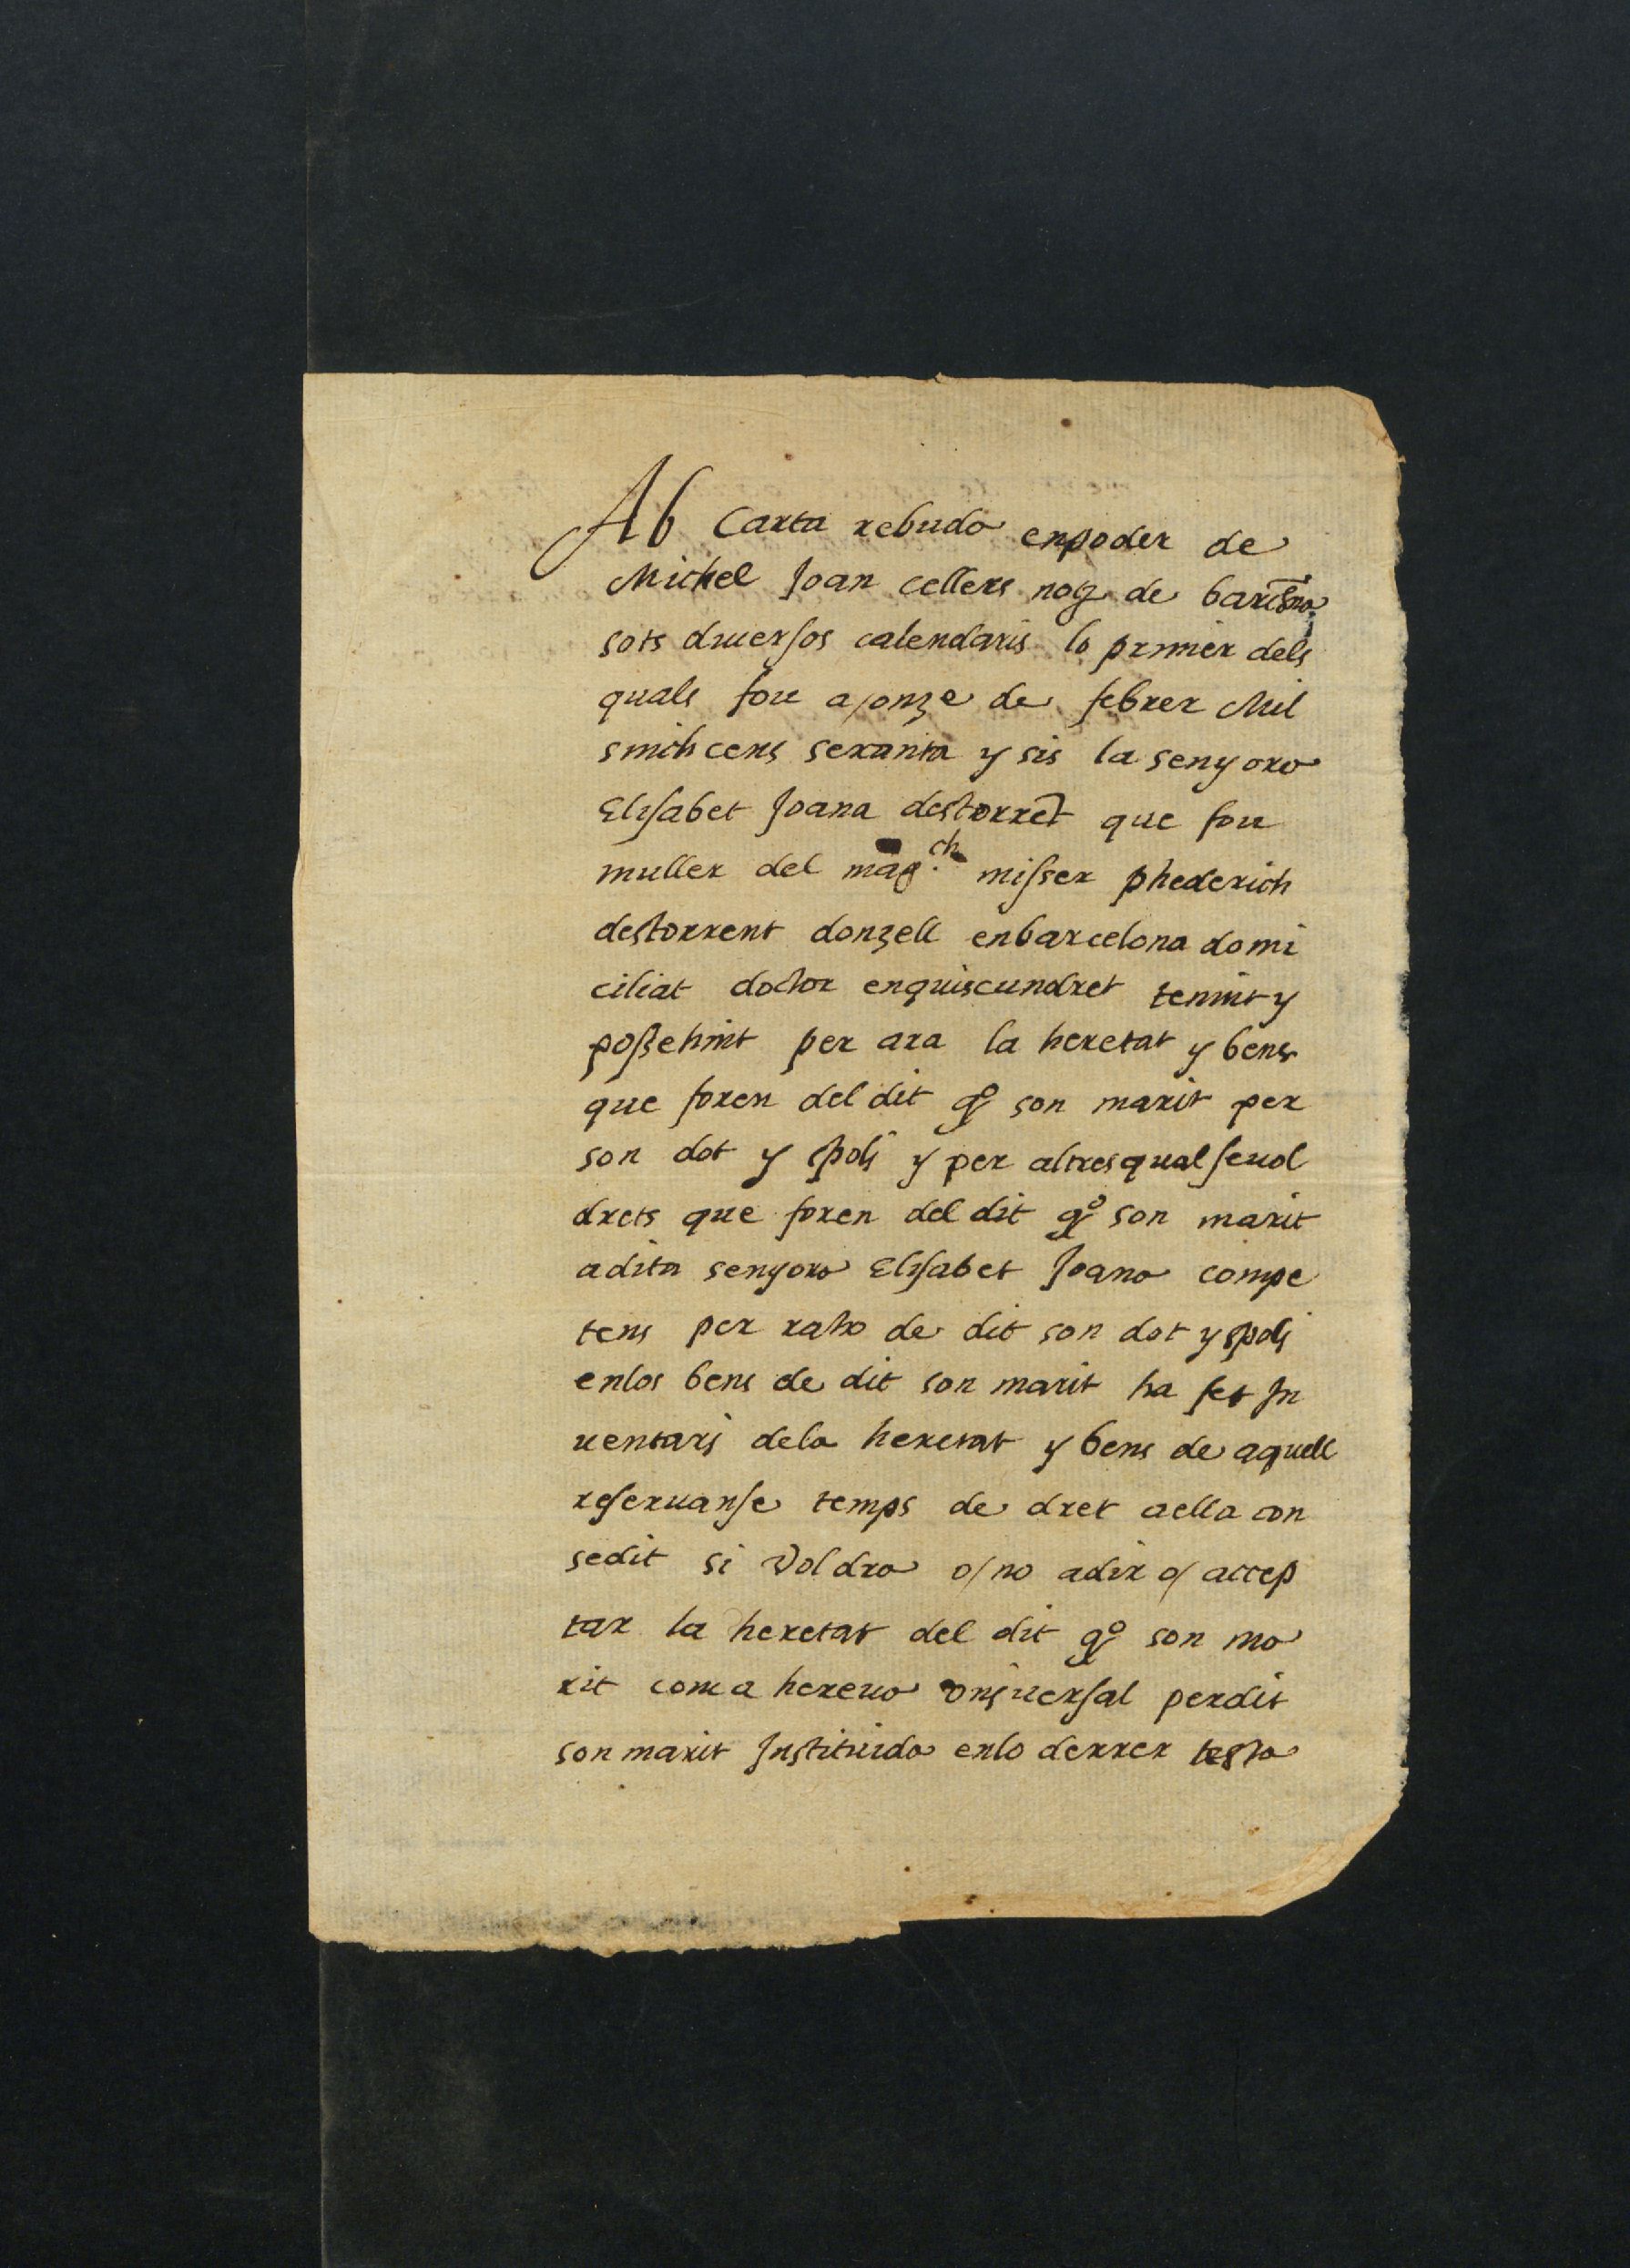 Ab Carta rebuda enpoder de
Michel Joan cellers noty de barc͠na
sots diuersos calendaris lo primer dels
quals fou a/onze de febrer Mil
sinch cens sexanta y sis la senyora
Elisabet Joana destorrẽt que fou
muller del mag.ch misser phederich
destorrent donzell enbarcelona domi
ciliat doctor enquiscundret tenint y
possehint per ara la heretat y bens
que foren del dit qº son marit per
son dot y spoli y per altres qualseuol
drets que foren del dit qº son marit
adita senyora Elisabet Joana compe
tens per raho de dit son dot y spoli
enlos bens de dit son marit ha fet In
uentari dela heretat y bens de aquell
reseruanse temps de dret aella con
sedit si Voldra o/no adir o/ accep
tar la heretat del dit qº son ma
rit com a hereua vniuersal perdit
son marit Instituida enlo derrer testa